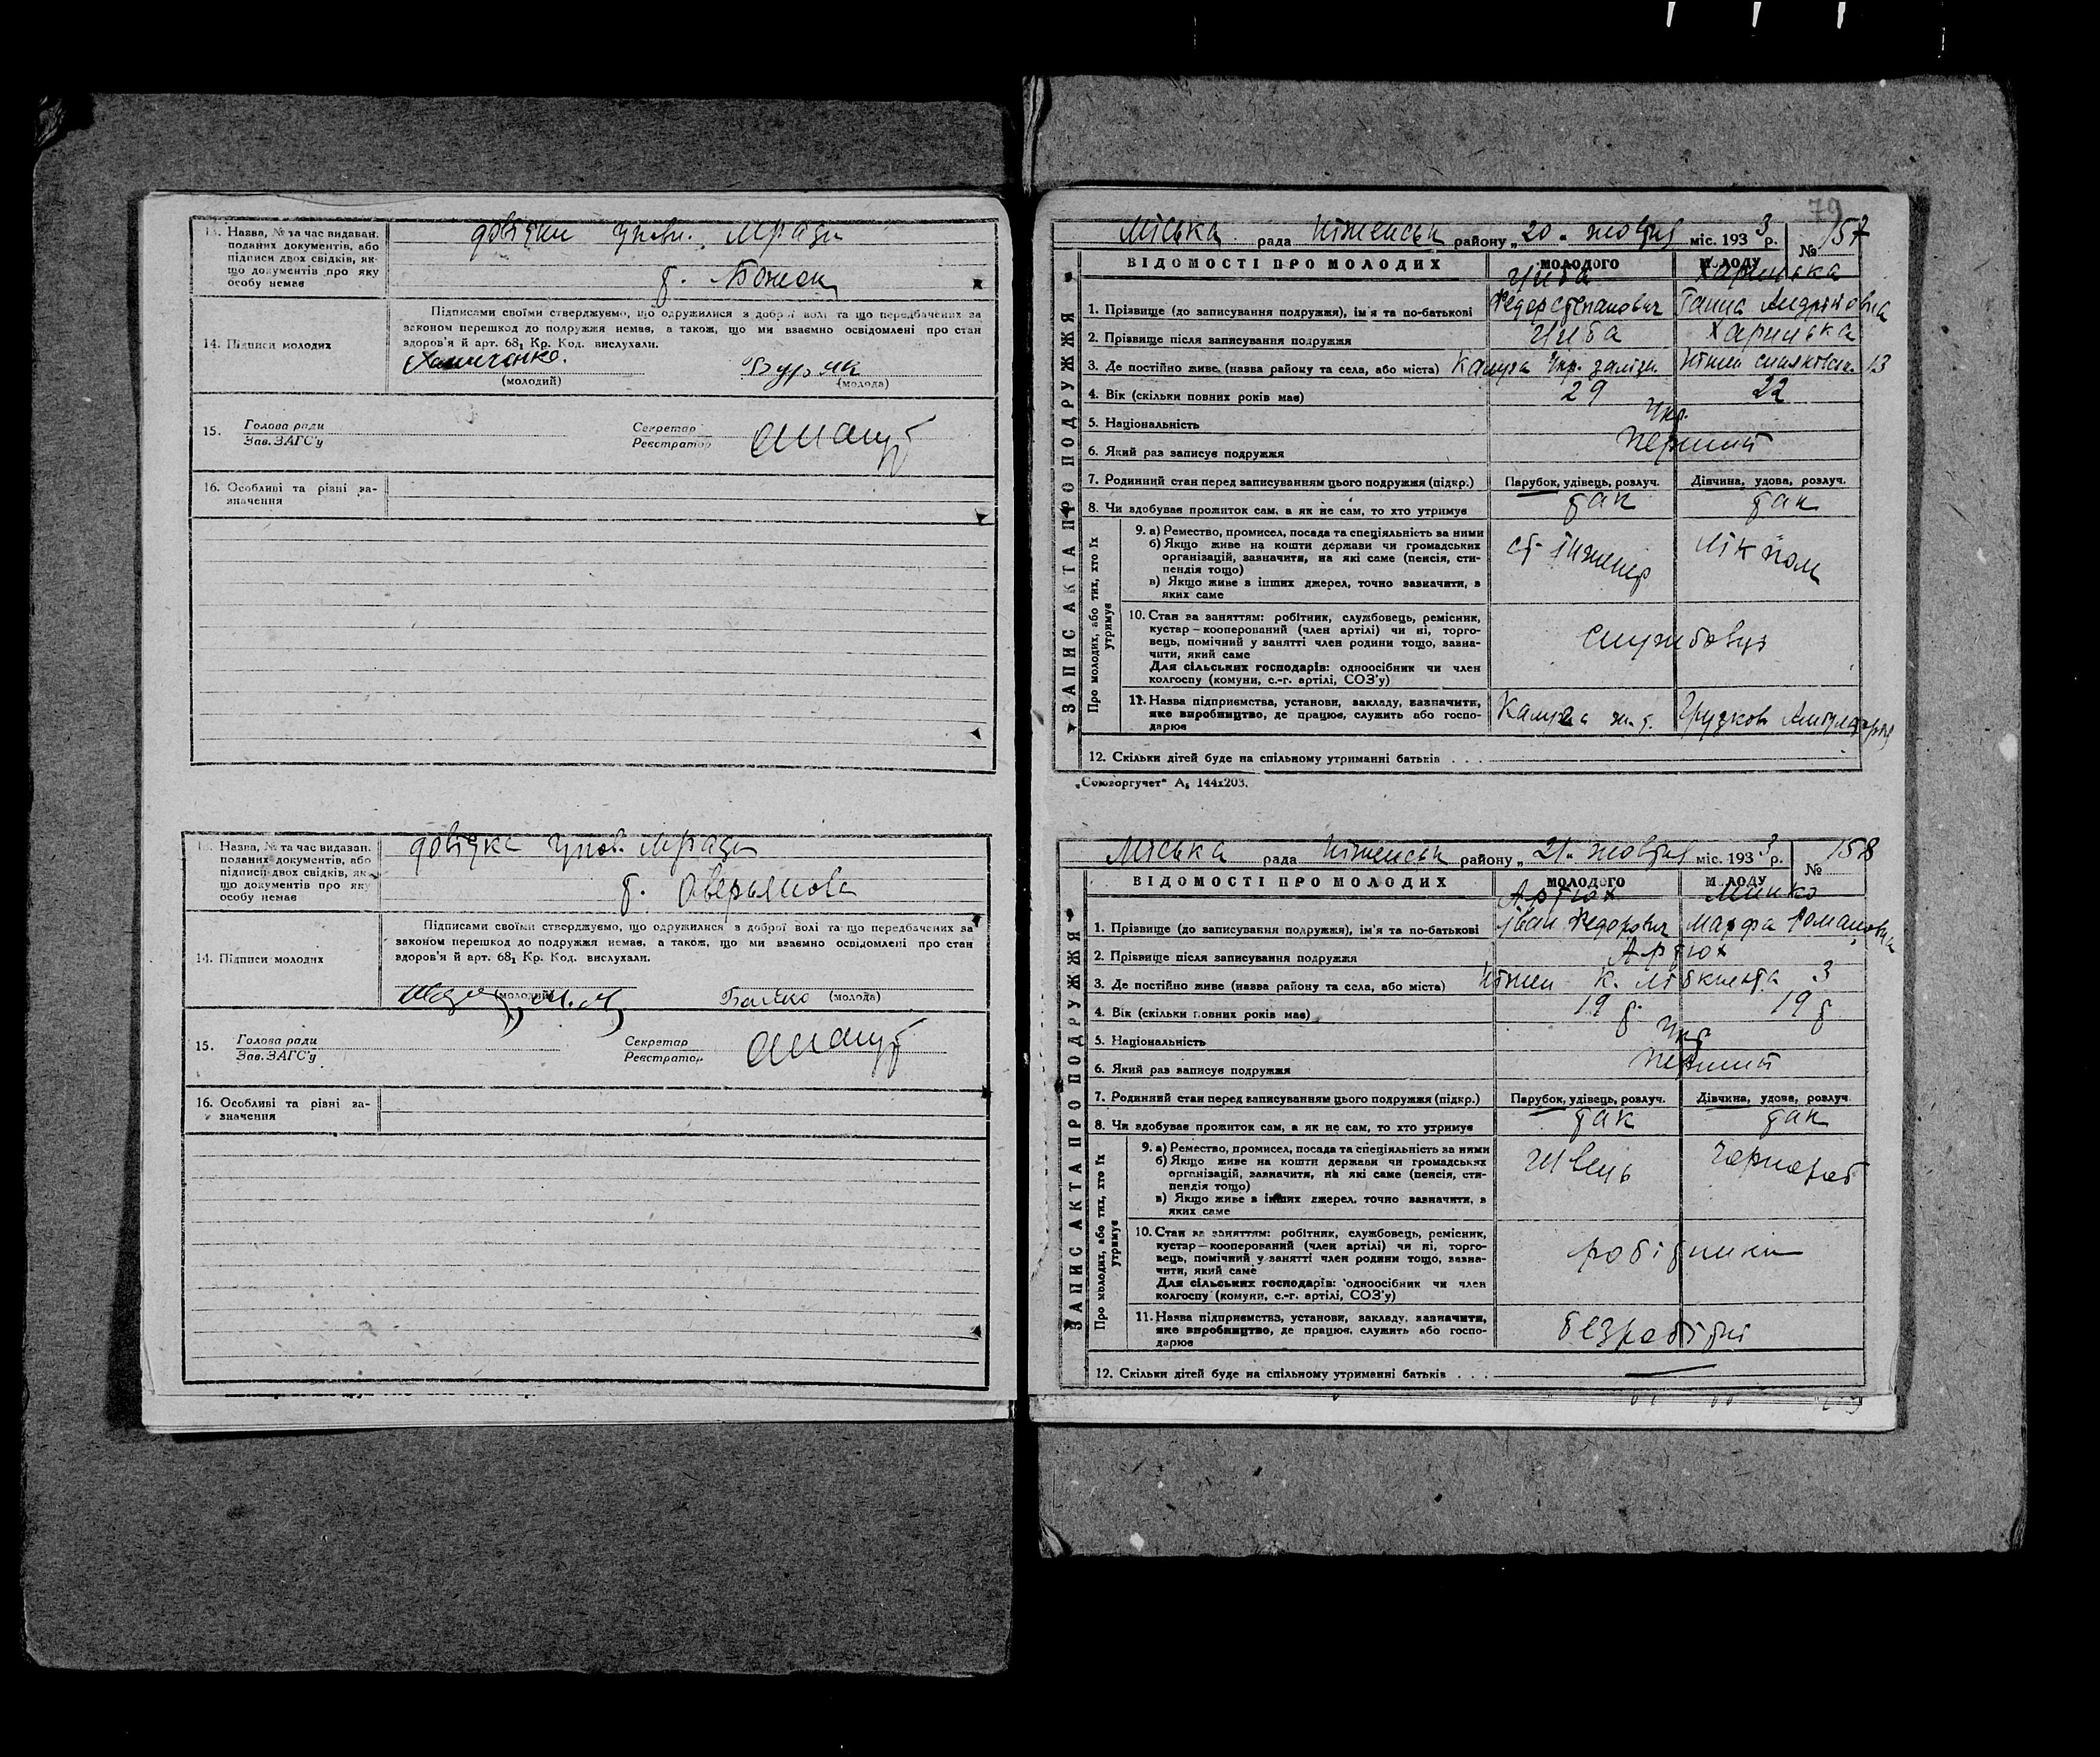 13. Назва, № та час видаван. поданих документів, або підписи двох свідків, якщо документів про яку особу немає
довідки упов. Мради
т.
Підписами своїми стверджуємо, що одружилися з доброї волі та що передбачених за
законом перешкод до подружжя немає, а також, що ми взаємно освідомлені про стан
здоров'я й арт. 68₁ Кр. Код. вислухали.
14. Підписи молодих
(молодий)
Буряк
(молода)
15. Голова ради
Зав. ЗАГС'у
Секретар
Реєстратор
16. Особливі та різні зазначення
13. Назва, № та час видаван. поданих документів, або підписи двох свідків, якщо документів про яку особу немає
довідка упов. Мради
т. Оверьянова
Підписами своїми стверджуємо, що одружилися з доброї волі та що передбачених за
законом перешкод до подружжя немає, а також, що ми взаємно освідомлені про стан
здоров'я й арт. 68₁ Кр. Код. вислухали.
14. Підписи молодих
(молодий)
(молода)
15. Голова ради
Зав. ЗАГС'у
Секретар
Реєстратор
16. Особливі та різні зазначення
79
Міська рада Ніженськ району „20" жовтня міс. 1933 р. № 157
ЗАПИС АКТА ПРО ПОДРУЖЖЯ
ВІДОМОСТІ ПРО МОЛОДИХ МОЛОДОГО МОЛОДУ
Циба Харилька
1. Прізвище (до записування подружжя), ім'я та по-батькові Федор Степанович Ганна Андрійовна
2. Прізвище після записування подружжя Циба Харилька
3. Де постійно живе (назва району та села, або міста) Калуга Ніжен 13
4. Вік (скільки повних років має) 29 22
5. Національність Укр.
6. Який раз записує подружжя перший
7. Родинний стан перед записуванням цього подружжя (підкр.) Парубок, удівець, розлуч. Дівчина, удова, розлуч.
8. Чи здобуває прожиток сам, а як не сам, то хто утримує так так
Про молодих, або тих, хто їх утримує
9. а) Ремество, промисел, посада та спеціяльність за ними
б) Якщо живе на кошти держави чи громадських
організацій, зазначити, на які саме (пенсія, сти-
пендія тощо)
в) Якщо живе з інших джерел, точно зазначити, з
яких саме
ст. інженер лікпом
10. Стан за заняттям: робітник, службовець, ремісник,
кустар—кооперований (член артілі) чи ні, торго-
вець, помічний у занятті член родини тощо, зазна-
чити, який саме
Для сільських господарів: одноосібник чи член
колгоспу (комуни, с.-г. артілі, СОЗ'у)
службовці
11. Назва підприємства, установи, закладу, зазначити,
яке виробництво, де працює, служить або госпо-
дарює
Калуга Амбулаторія
12. Скільки дітей буде на спільному утриманні батьків . . .
„Союзоргучет" А₅ 144х203.
Міська рада Ніженськ району „21" жовтня міс. 1933 р. № 158
ЗАПИС АКТА ПРО ПОДРУЖЖЯ
ВІДОМОСТІ ПРО МОЛОДИХ МОЛОДОГО МОЛОДУ
Артюх Минко
1. Прізвище (до записування подружжя), ім'я та по-батькові Іван Федорович Марфа Романовна
2. Прізвище після записування подружжя Артюх
3. Де постійно живе (назва району та села, або міста) Ніжен К. Лібкнехта 3
4. Вік (скільки повних років має) 19 19
5. Національність Укр
6. Який раз записує подружжя перший
7. Родинний стан перед записуванням цього подружжя (підкр.) Парубок, удівець, розлуч. Дівчина, удова, розлуч.
8. Чи здобуває прожиток сам, а як не сам, то хто утримує так так
Про молодих, або тих, хто їх утримує
9. а) Ремество, промисел, посада та спеціяльність за ними
б) Якщо живе на кошти держави чи громадських
організацій, зазначити, на які саме (пенсія, сти-
пендія тощо)
в) Якщо живе з інших джерел, точно зазначити, з
яких саме
Швець Чорнороб
10. Стан за заняттям: робітник, службовець, ремісник,
кустар—кооперований (член артілі) чи ні, торго-
вець, помічний у занятті член родини тощо, зазна-
чити, який саме
Для сільських господарів: одноосібник чи член
колгоспу (комуни, с.-г. артілі, СОЗ'у)
робітники
11. Назва підприємства, установи, закладу, зазначити,
яке виробництво, де працює, служить або госпо-
дарює
безробітні
12. Скільки дітей буде на спільному утриманні батьків . . . —